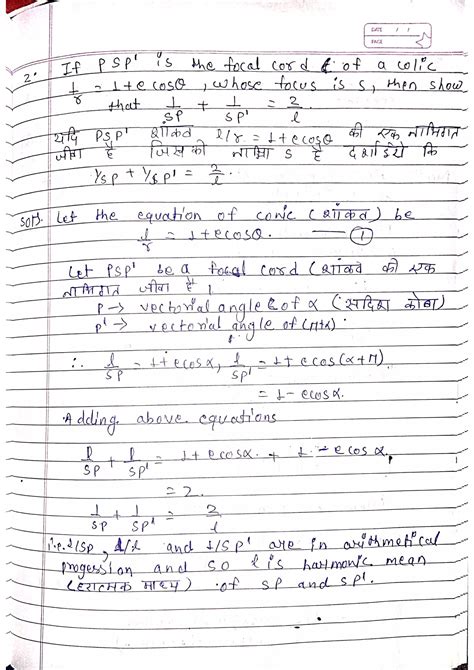 DATE / /
PAGE
2. If PSP' is the focal cord of a colic
l/r = 1+e cosθ, whose focus is s, then show
that 1/SP + 1/SP' = 2/l
यदि PSP' शांकव l/r = 1+e cosθ की एक नाभिगत
जीवा है जिसकी नाभि S है दर्शाईये कि
1/SP + 1/SP' = 2/l
Soln. Let the equation of conic (शांकव) be
l/r = 1+e cosθ. — ①
Let PSP' be a focal cord (शांकव की एक
नाभिगत जीवा है।
P → vectorial angle of α (सदिश कोण)
P' → vectorial angle of (π+α)
∴ l/SP = 1+e cosα, l/SP' = 1+e cos(α+π)
= 1-e cosα.
Adding above equations
l/SP + l/SP' = 1+e cosα + 1-e cosα
= 2.
1/SP + 1/SP' = 2/l
i.e. 1/SP, 1/l and 1/SP' are in arithmetical
progession and so l is harmonic mean
(हरात्मक माध्य) of SP and SP'.